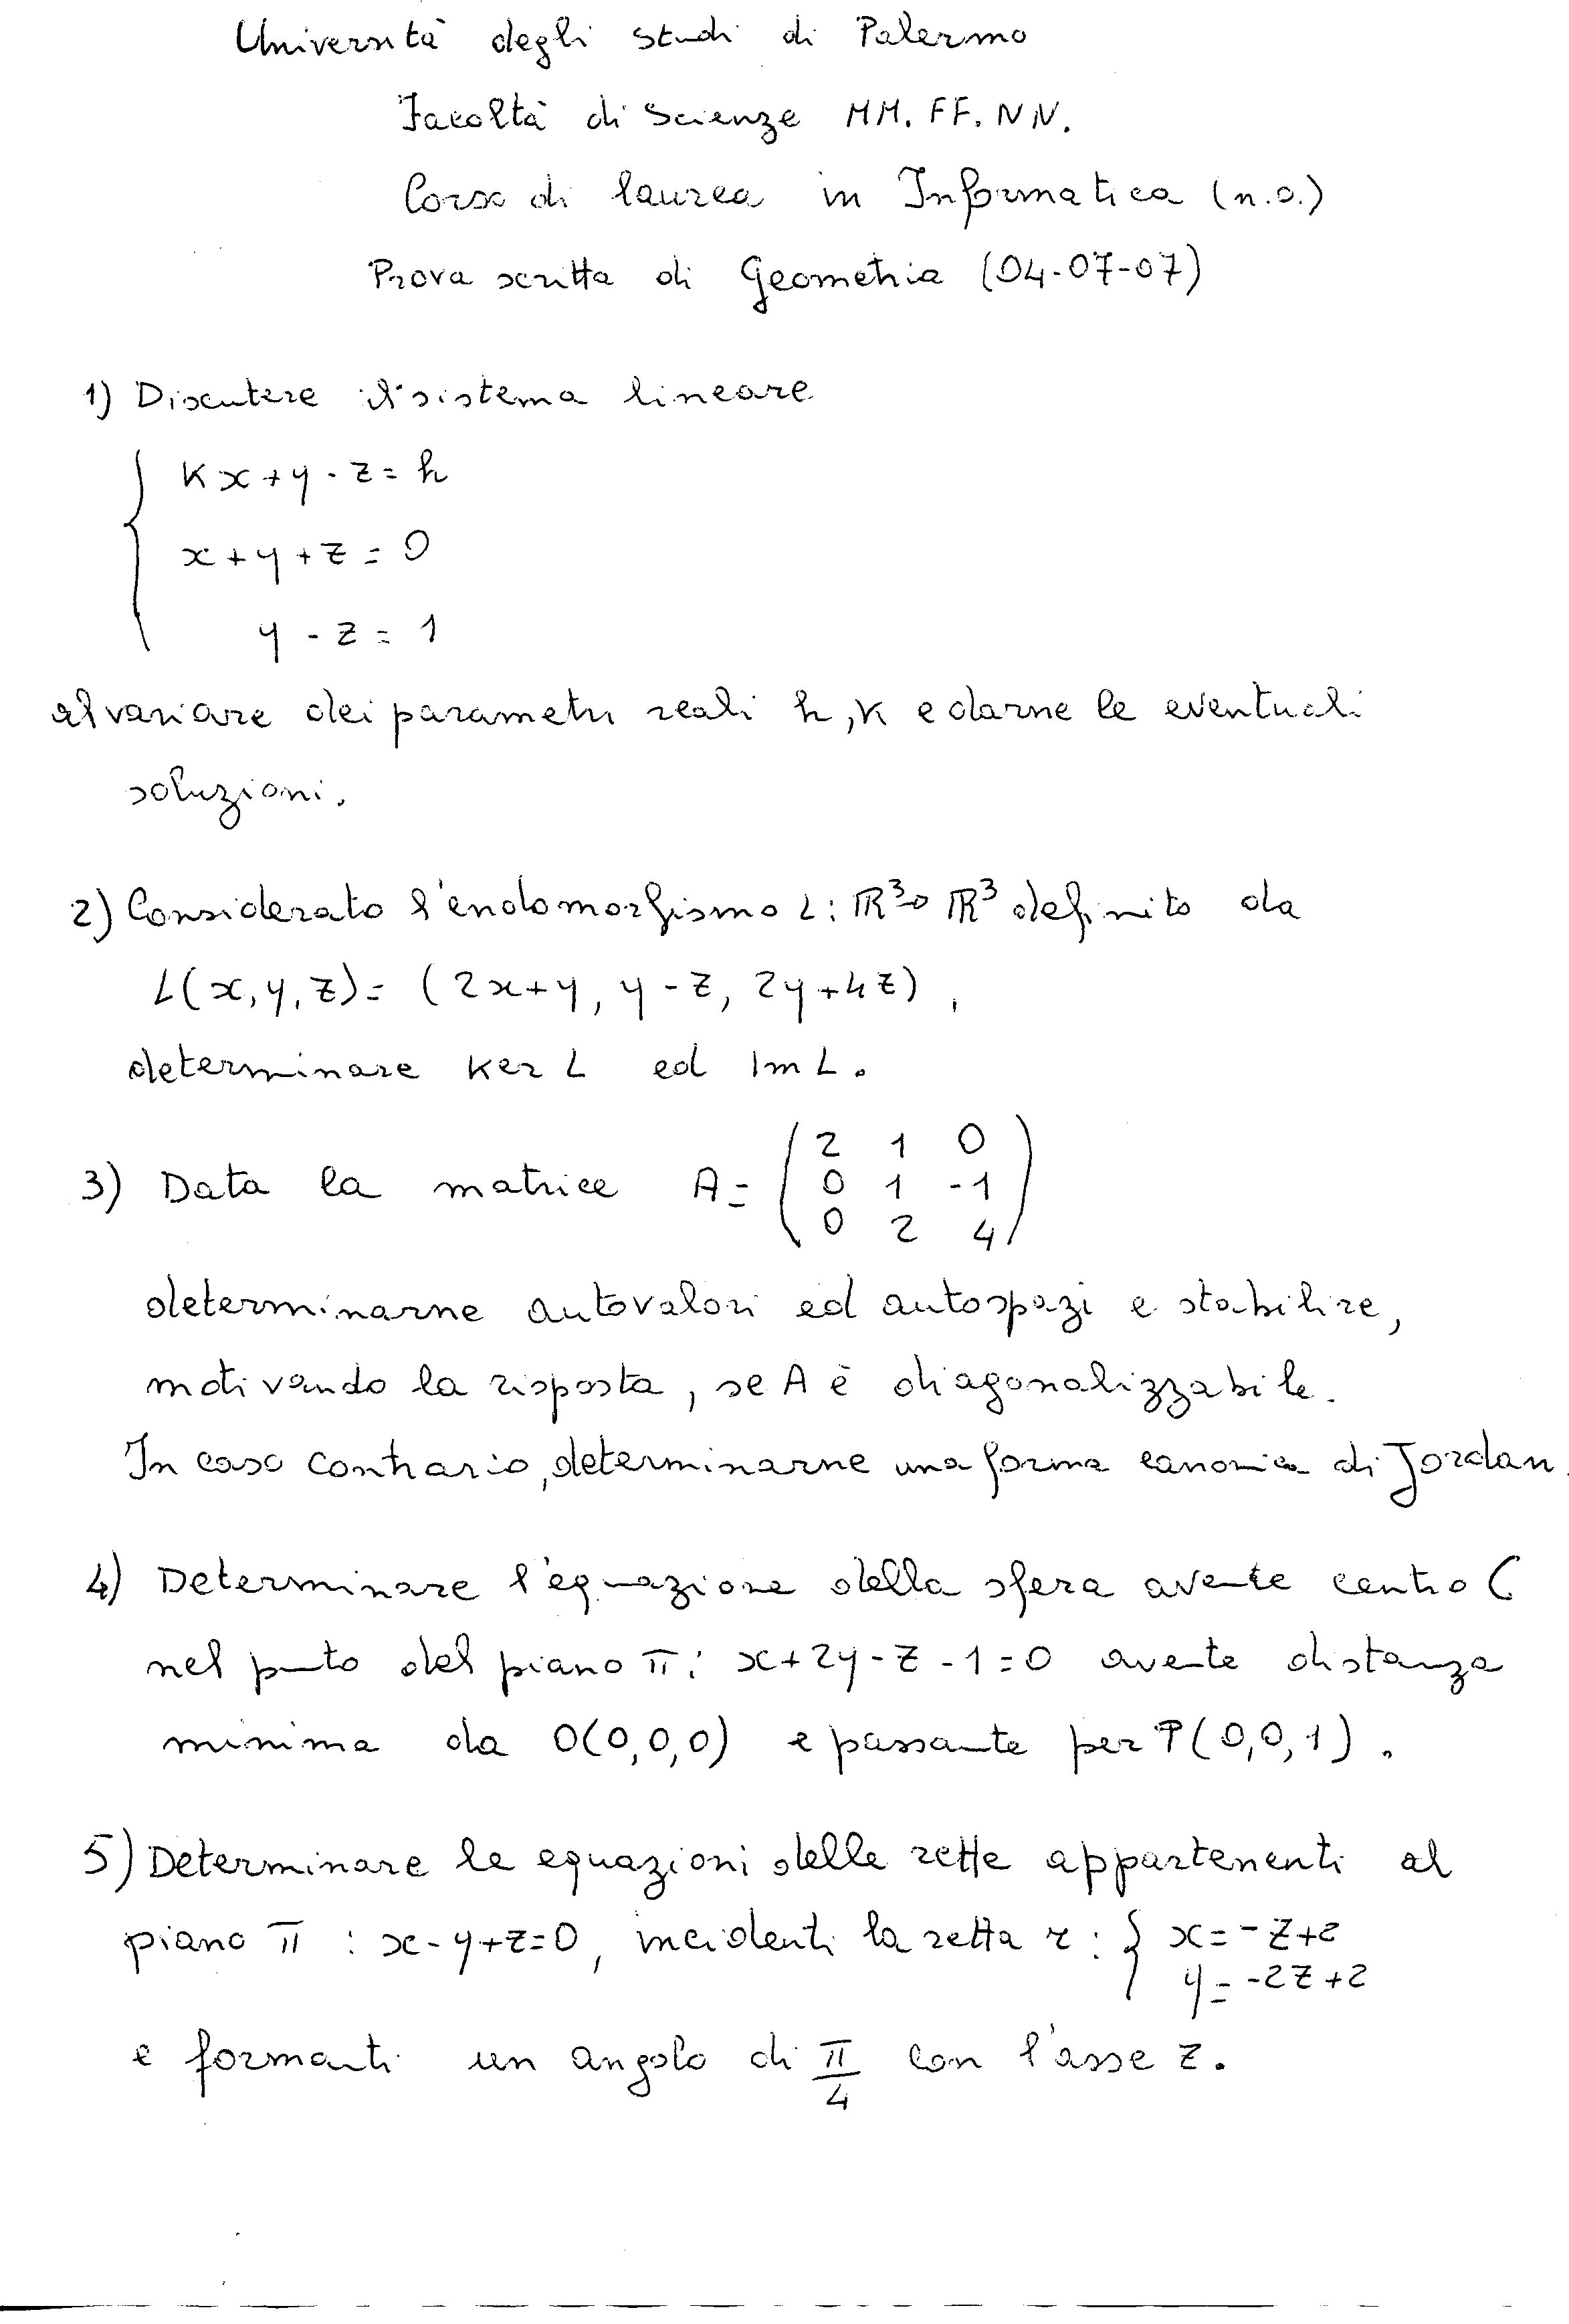 Università degli studi di Palermo
Facoltà di Scienze MM. FF. NN.
Corso di laurea in Informatica (n.o.)
Prova scritta di Geometria (04-07-07)
1) Discutere il sistema lineare
kx+y-z=h
x+y+z=0
y-z=1
al variare dei parametri reali h,k e darne le eventuali
soluzioni.
2) Considerato l'endomorfismo L: ℝ³→ℝ³ definito da
L(x,y,z)=(2x+y, y-z, 2y+4z),
determinare Ker L ed Im L.
3) Data la matrice A= (2 1 0
0 1 -1
0 2 4)
determinarne autovalori ed autospazi e stabilire,
motivando la risposta, se A è diagonalizzabile.
In caso contrario, determinarne una forma canonica di Jordan.
4) Determinare l'equazione della sfera avente centro C
nel punto del piano π: x+2y-z-1=0 avente distanza
minima da O(0,0,0) e passante per P(0,0,1).
5) Determinare le equazioni delle rette appartenenti al
piano π: x-y+z=0, incidenti la retta r: { x=-z+2
y=-2z+2
e formanti un angolo di π/4 con l'asse z.